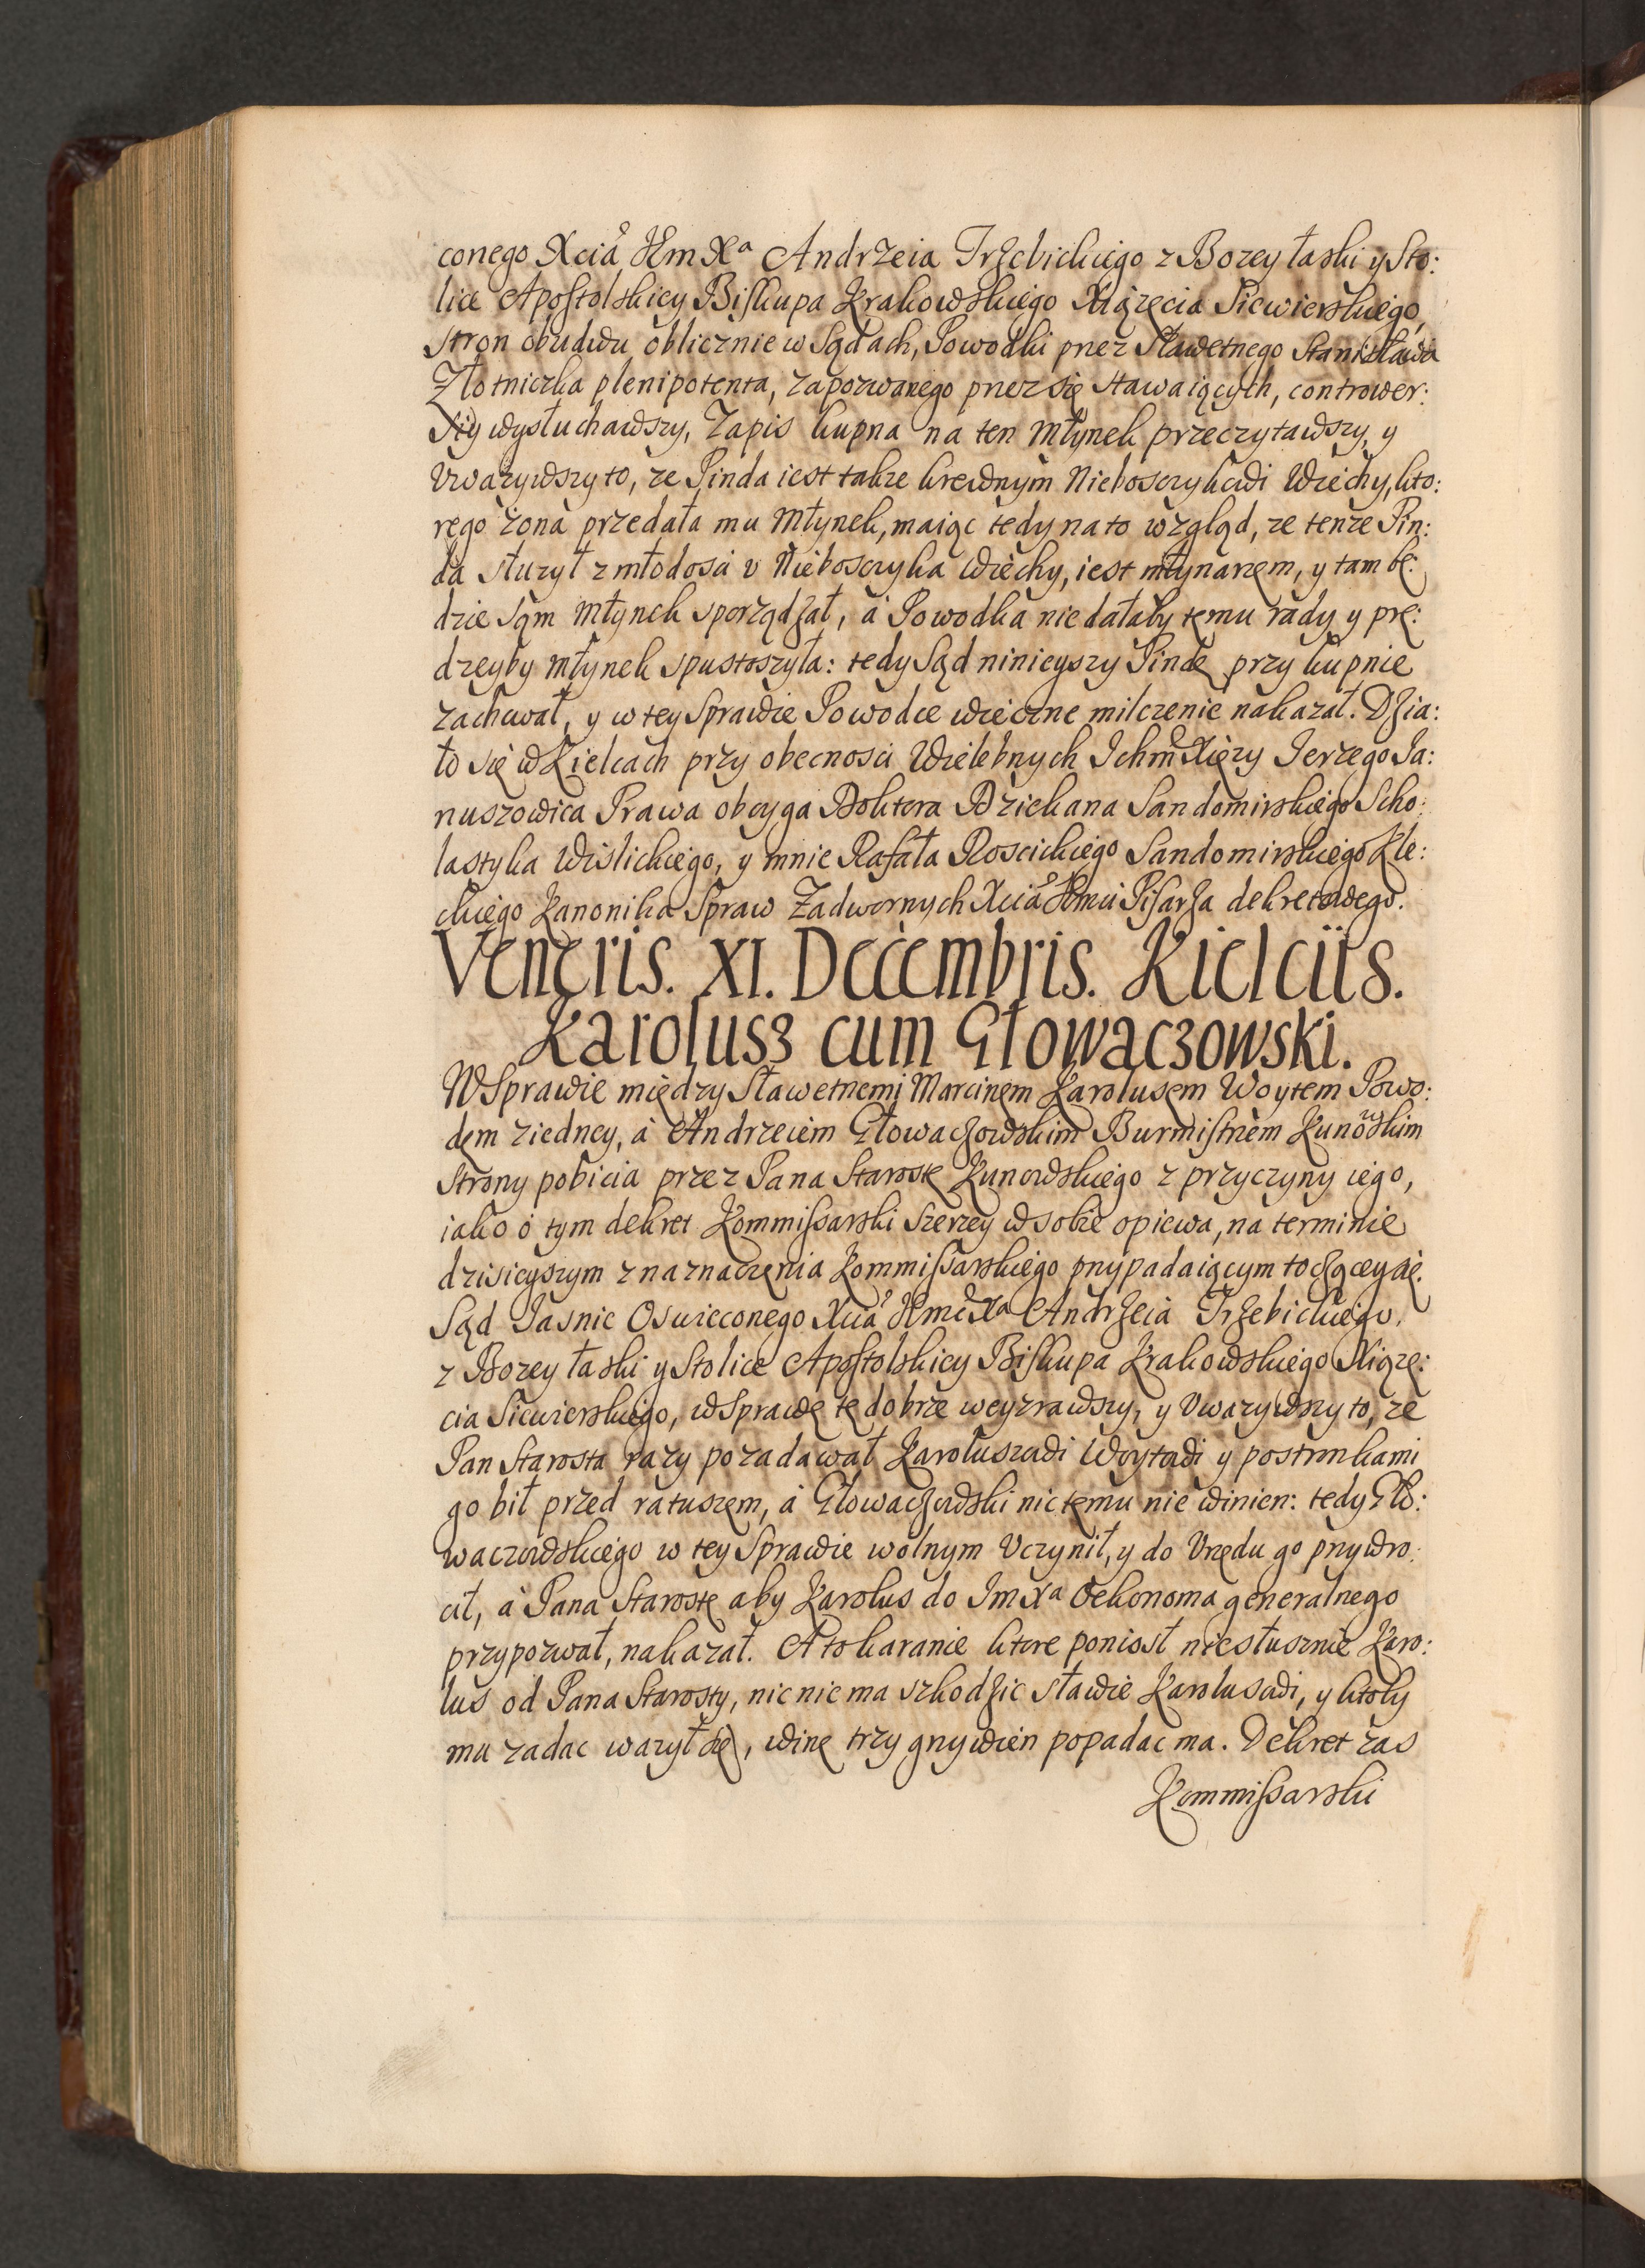 conego Xcia Jm Xa Andrzeia Trzebickiego z Bozey łaski y Sto:
lice Apostolskiey Biskupa Krakowskiego Xiążęcia Siewierskiego,
stron obudwu oblicznie w Sądach, Powodki przez Sławetnego Stanisława
Złotniczka plenipotenta, zapozwanego przez się stawaiących, contrower:
siy wysłuchawszy, Zapis kupna na ten Młynek przeczytawszy, y
Vważywszy to, ze Pinda iest takze krewnym Nieboszczykowi Wiechy, kto:
rego żona przedała mu Młynek, maiąc tedy na to wzgląd, ze tenze Pin:
da służył z młodosci v Nieboszczyka Wiechy, iest młynarzem, y tam bę:
dzie sąm Młynek sporządzał, á Powodka nie dałaby temu rady y prę:
dzeyby młynek spustoszyła: tedy Sąd ninieyszy Pindę przy kupnie
zachował, y w tey Sprawie Powodce wieczne milczenie nakazał. Dzia:
ło się w Kielcach przy obecnosci Wielebnych Ichm Xięzy Jerzego Ja:
nuszowica Prawa oboyga Doktora Dziekana Sandomirskiego Scho:
lastyka Wislickiego, y mnie Rafała Roscickiego Sandomirskiego Kie:
ckiego Kanonika Spraw Zadwornych Xcia Jmci Pisarza dekretowego.
Veneris. XI. Decembris. Kielciis.
Karolusz cum Głowaczowski.
W Sprawie między Sławetnemi Marcinem Karolusem Woytem Powo:
dem ziedney, á Andrzeiem Głowaczowskim Burmistrzem Kunowskim
strony pobicia przez Pana Starostę Kunowskiego z przyczyny iego,
iako o tym dekret Kommissarski szerzey w sobie opiewa, na terminie
dzisieyszym z naznaczenia Kommissarskiego przypadaiącym toczącey się.
Sąd Jasnie Oswieconego Xcia Jmci Xa Andrzeia Trzebickiego,
z Bozey łaski y Stolice Apostolskiey Biskupa Krakowskiego Xiążę:
cia Siewierskiego, w Sprawę tę dobrze weyzrawszy, y Vważywszy to, ze
Pan Starosta razy pozadawał Karoluszowi Woytowi y postronkami
go bił przed ratuszem, á Głowaczowski nic temu nie winien: tedy Gło:
waczowskiego w tey Sprawie wolnym Vczynił, y do Vrzędu go przywro:
cił, á Pana Starostę aby Karolus do Jm Xa Oekonoma generalnego
przypozwał, nakazał. A to karanie ktore poniosł niesłusznie Karo:
lus od Pana Starosty, nic nie ma szkodzic sławie Karolusowi, y ktoby
mu zadac ważył się, winę trzy grzywien popadac ma. Dekret zas
Kommissarski